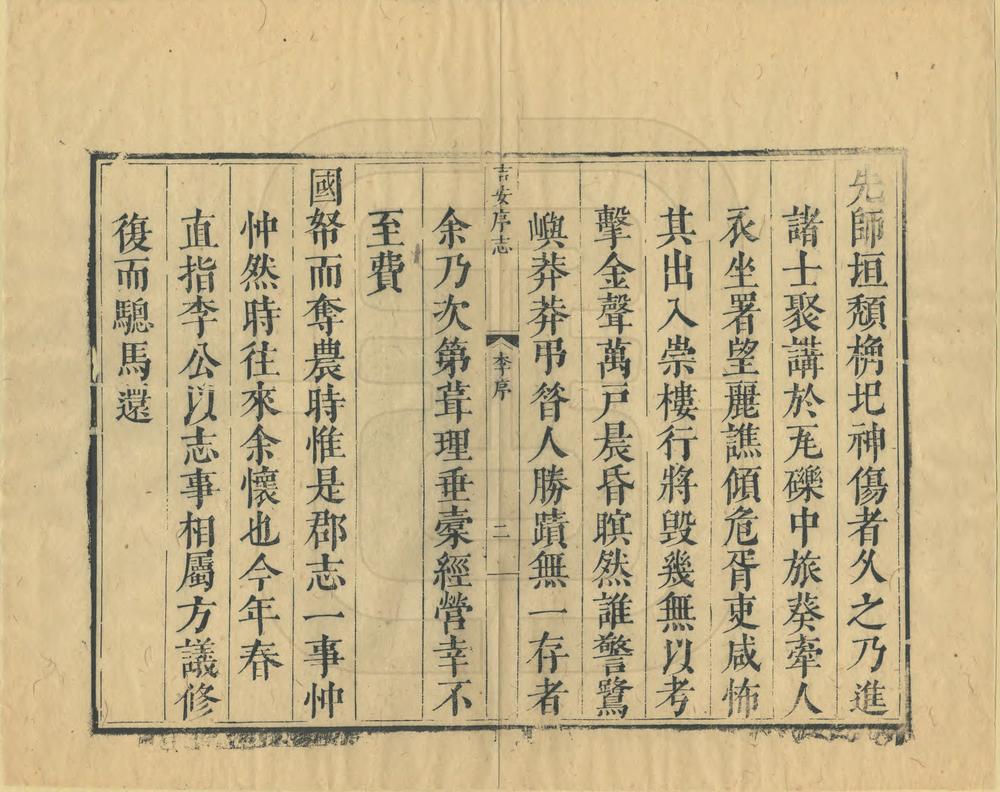 先師垣頽桷圯神傷者久之乃進
諸士聚講於𤬦礫中旅葵牽人
衣坐署望麗譙傾危胥吏咸怖
其出入崇樓行將毁幾無以考
擊金聲萬戸晨昏瞑然誰警鷺
嶼莽莽弔昝人勝蹟無一存者
吉安序志
李序
二
余乃次第葺理垂橐經營幸不
至費
國帑而奪農時惟是郡志一事忡
忡然時往來余懷也今年春
直指李公以志事相屬方議修
復而驄馬還